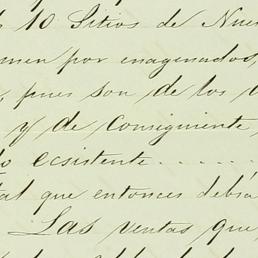 10 Sitios de Nue
men por enagenados,
, pues son de los
y de consiguiente,
lo ecsistente.......
tal que entonces debía
Las ventas que,